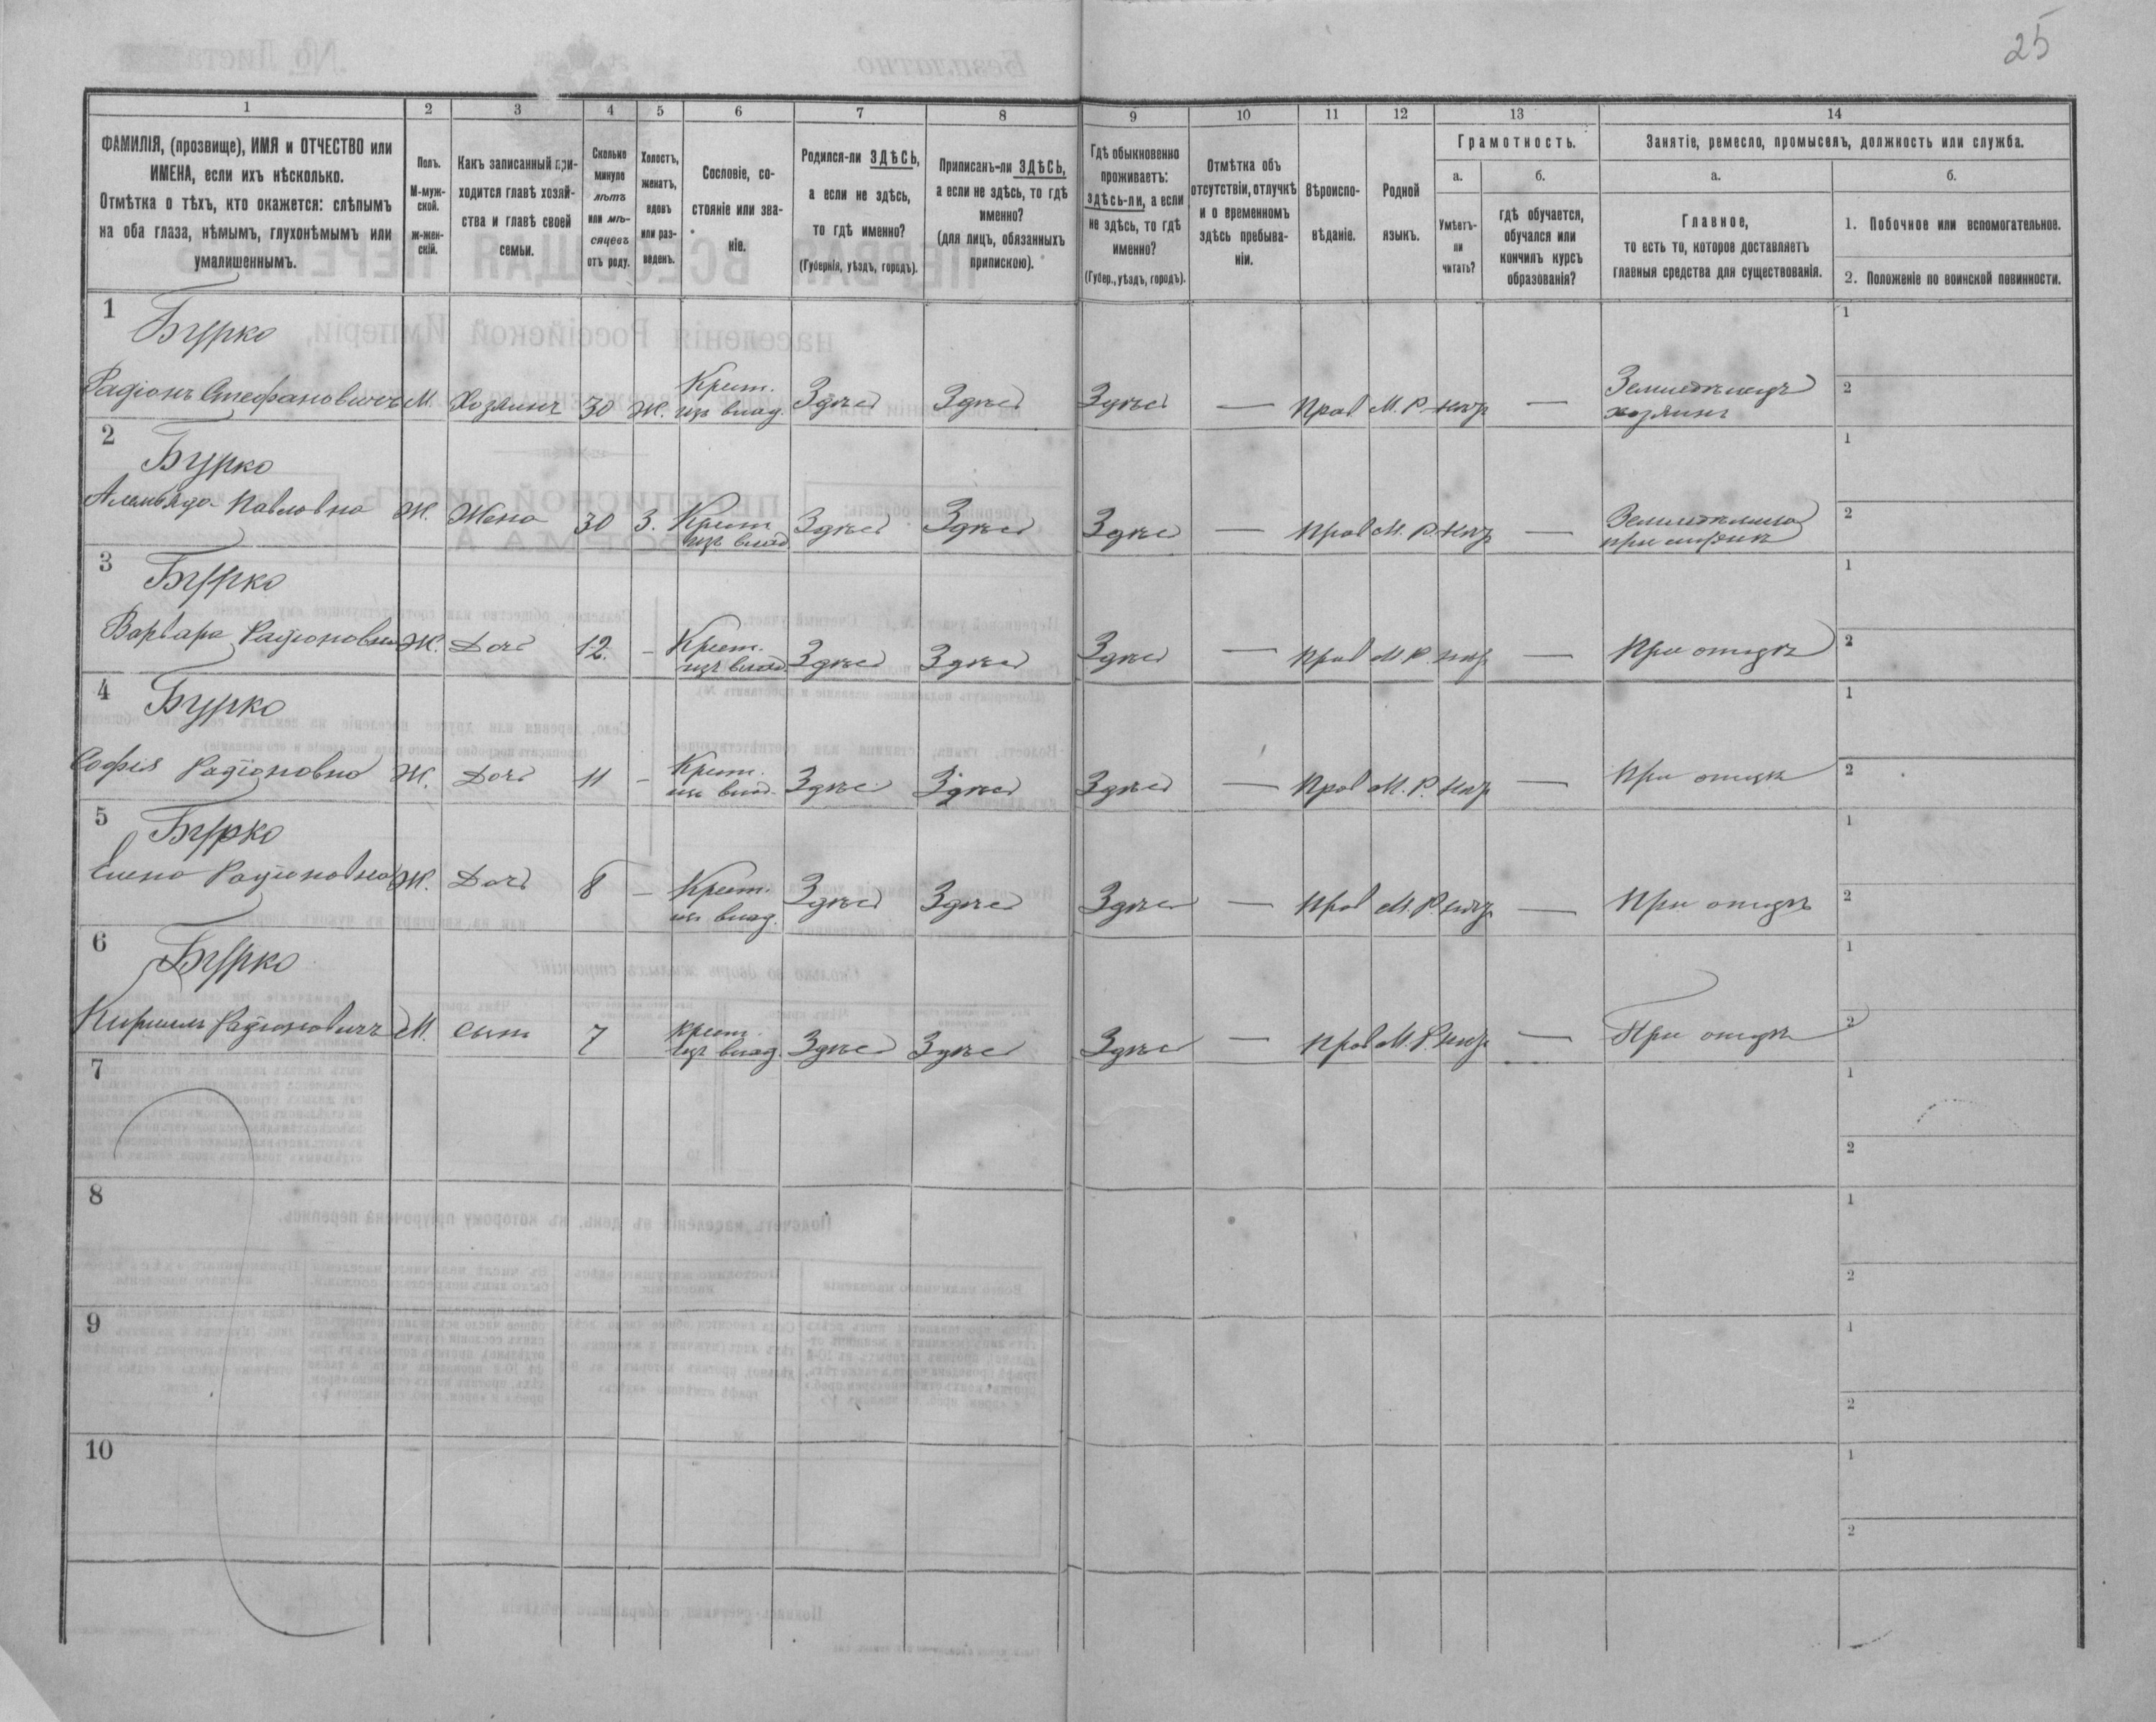 25
1 2 3 4 5 6 7 8 9 10 11 12 13 14
ФАМИЛІЯ, (прозвище), ИМЯ и ОТЧЕСТВО или
ИМЕНА, если ихъ нѣсколько.
Отмѣтка о тѣхъ, кто окажется: слѣпымъ
на оба глаза, нѣмымъ, глухонѣмымъ или
умалишеннымъ.
Полъ.
М-муж-
ской.
Ж-жен-
скій.
Какъ записанный при-
ходится главѣ хозяй-
ства и главѣ своей
семьи.
Сколько
минуло
лѣтъ
или мѣ-
сяцевъ
отъ роду.
Холостъ,
женатъ,
вдовъ
или раз-
веденъ.
Сословіе, со-
стояніе или зва-
ніе.
Родился-ли ЗДѢСЬ,
а если не здѣсь,
то гдѣ именно?
(Губернія, уѣздъ, городъ).
Приписанъ-ли ЗДѢСЬ,
а если не здѣсь, то гдѣ
именно?
(для лицъ, обязанныхъ
припискою).
Гдѣ обыкновенно
проживаетъ:
здѣсь-ли, а если
не здѣсь, то гдѣ
именно?
(Губер., уѣздъ, городъ).
Отмѣтка объ
отсутствіи, отлучкѣ
и о временномъ
здѣсь пребыва-
ніи.
Вѣроиспо-
вѣданіе.
Родной
языкъ.
Грамотность.
а.
Умѣетъ-
ли
читать?
б.
гдѣ обучается,
обучался или
кончилъ курсъ
образованія?
Занятіе, ремесло, промыселъ, должность или служба.
а.
Главное,
то есть то, которое доставляетъ
главныя средства для существованія.
б.
1. Побочное или вспомогательное.
2. Положеніе по воинской повинности.
1
Бурко
Радіонъ Стефановичъ М. Хозяинъ 30 Ж. Крест. изъ влад. Здѣсь Здѣсь Здѣсь — Прав М. Р. нѣтъ — Земледѣлецъ хозяинъ
1
2
2
Бурко
Павловна Ж. Жена 30 З. Крест. изъ влад. Здѣсь Здѣсь Здѣсь — Прав М. Р. нѣтъ —
1
2
3
Бурко
Варвара Радіоновна Ж. Дочь 12. — Крест. изъ влад. Здѣсь Здѣсь Здѣсь — Прав М. Р. нѣтъ — При отцѣ
1
2
4
Бурко
Софія Радіоновна Ж. Дочь 11 — Крест. изъ влад. Здѣсь Здѣсь Здѣсь — Прав М. Р. нѣтъ — При отцѣ
1
2
5
Бурко
Елена Радіоновна Ж. Дочь 8 — Крест. изъ влад. Здѣсь Здѣсь Здѣсь — Прав М. Р. нѣтъ — При отцѣ
1
2
6
Бурко
Кирилъ Радіоновичъ М. Сынъ 7 Крест. изъ влад. Здѣсь Здѣсь Здѣсь — Прав М. Р. нѣтъ — При отцѣ
1
2
7
1
2
8
1
2
9
1
2
10
1
2